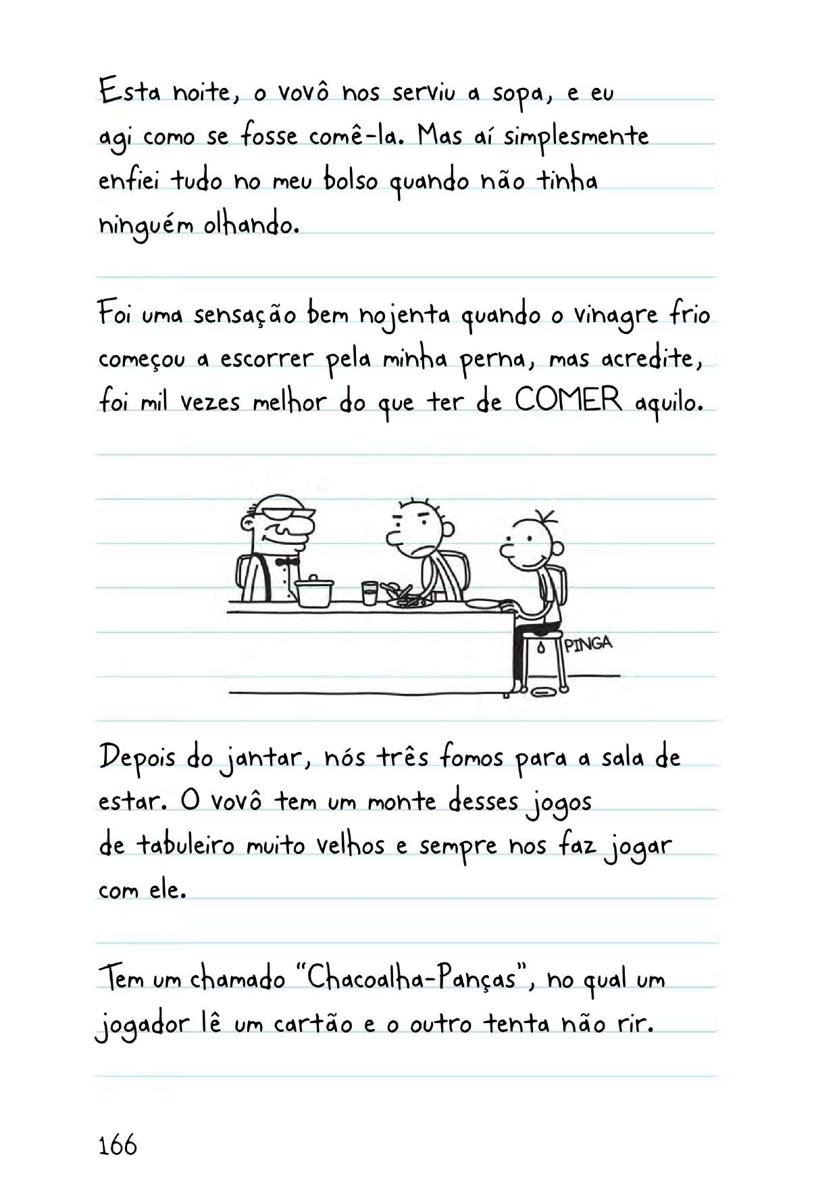 Esta noite, o vovô nos serviu a sopa, e eu
agi como se fosse comê-la. Mas aí simplesmente
enfiei tudo no meu bolso quando não tinha
ninguém olhando.
Foi uma sensação bem nojenta quando o vinagre frio
começou a escorrer pela minha perna, mas acredite,
foi mil vezes melhor do que ter de COMER aquilo.
PINGA
Depois do jantar, nós três fomos para a sala de
estar. O vovô tem um monte desses jogos
de tabuleiro muito velhos e sempre nos faz jogar
com ele.
Tem um chamado “Chacoalha-Panças”, no qual um
jogador lê um cartão e o outro tenta não rir.
166